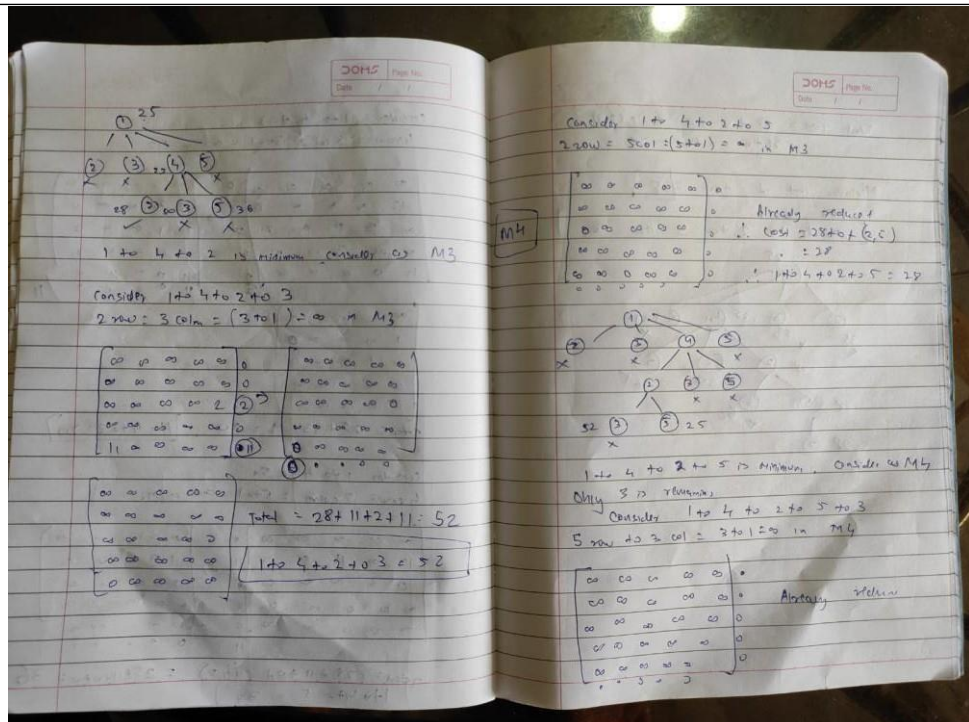 JOHS Page No.
Date / /
① 25
② ③ ④ ⑤
x x
28 ② ∞ ③ ⑤ 36
✓ x x
1 to 4 to 2 is minimum consider as M3
Consider 1 to 4 to 2 to 3
2 row = 3 colm = (3 to 1) = ∞ in M3
∞ ∞ ∞ ∞ ∞ 0
∞ ∞ ∞ ∞ ∞ 0
∞ ∞ ∞ ∞ 2 ②
∞ ∞ ∞ ∞ ∞ 0
11 ∞ ∞ ∞ ∞ 11
∞ ∞ ∞ ∞ ∞
∞ ∞ ∞ ∞ ∞
∞ ∞ ∞ ∞ 0
∞ ∞ ∞ ∞ ∞
0 ∞ ∞ ∞ ∞
∞ ∞ ∞ ∞ ∞
∞ ∞ ∞ ∞ ∞
∞ ∞ ∞ ∞ 0
∞ ∞ ∞ ∞ ∞
0 ∞ ∞ ∞ ∞
Total = 28 + 11 + 2 + 11 = 52
1 to 4 to 2 to 3 = 52
JOHS Page No.
Date / /
Consider 1 to 4 to 2 to 5
2 row = 5 col = (5 to 1) = ∞ in M3
M4
∞ ∞ ∞ ∞ ∞ 0
∞ ∞ ∞ ∞ ∞ 0
0 ∞ ∞ ∞ ∞ 0
∞ ∞ ∞ ∞ ∞ 0
∞ ∞ 0 ∞ ∞ 0
Already reduced
∴ Cost = 28 + 0 + (2,5)
= 28
∴ 1 to 4 to 2 to 5 = 28
①
② ③ ④ ⑤
x x x
② ③ ⑤
x x
52 ③ ⑤ 25
x
1 to 4 to 2 to 5 is minimum. Consider as M4
Only 3 is
Consider 1 to 4 to 2 to 5 to 3
5 row to 3 col = 3 to 1 = ∞ in M4
∞ ∞ ∞ ∞ ∞
∞ ∞ ∞ ∞ ∞ 0
∞ ∞ ∞ ∞ ∞ 0
∞ ∞ ∞ ∞ ∞ 0
∞ ∞ ∞ ∞ ∞ 0
Already